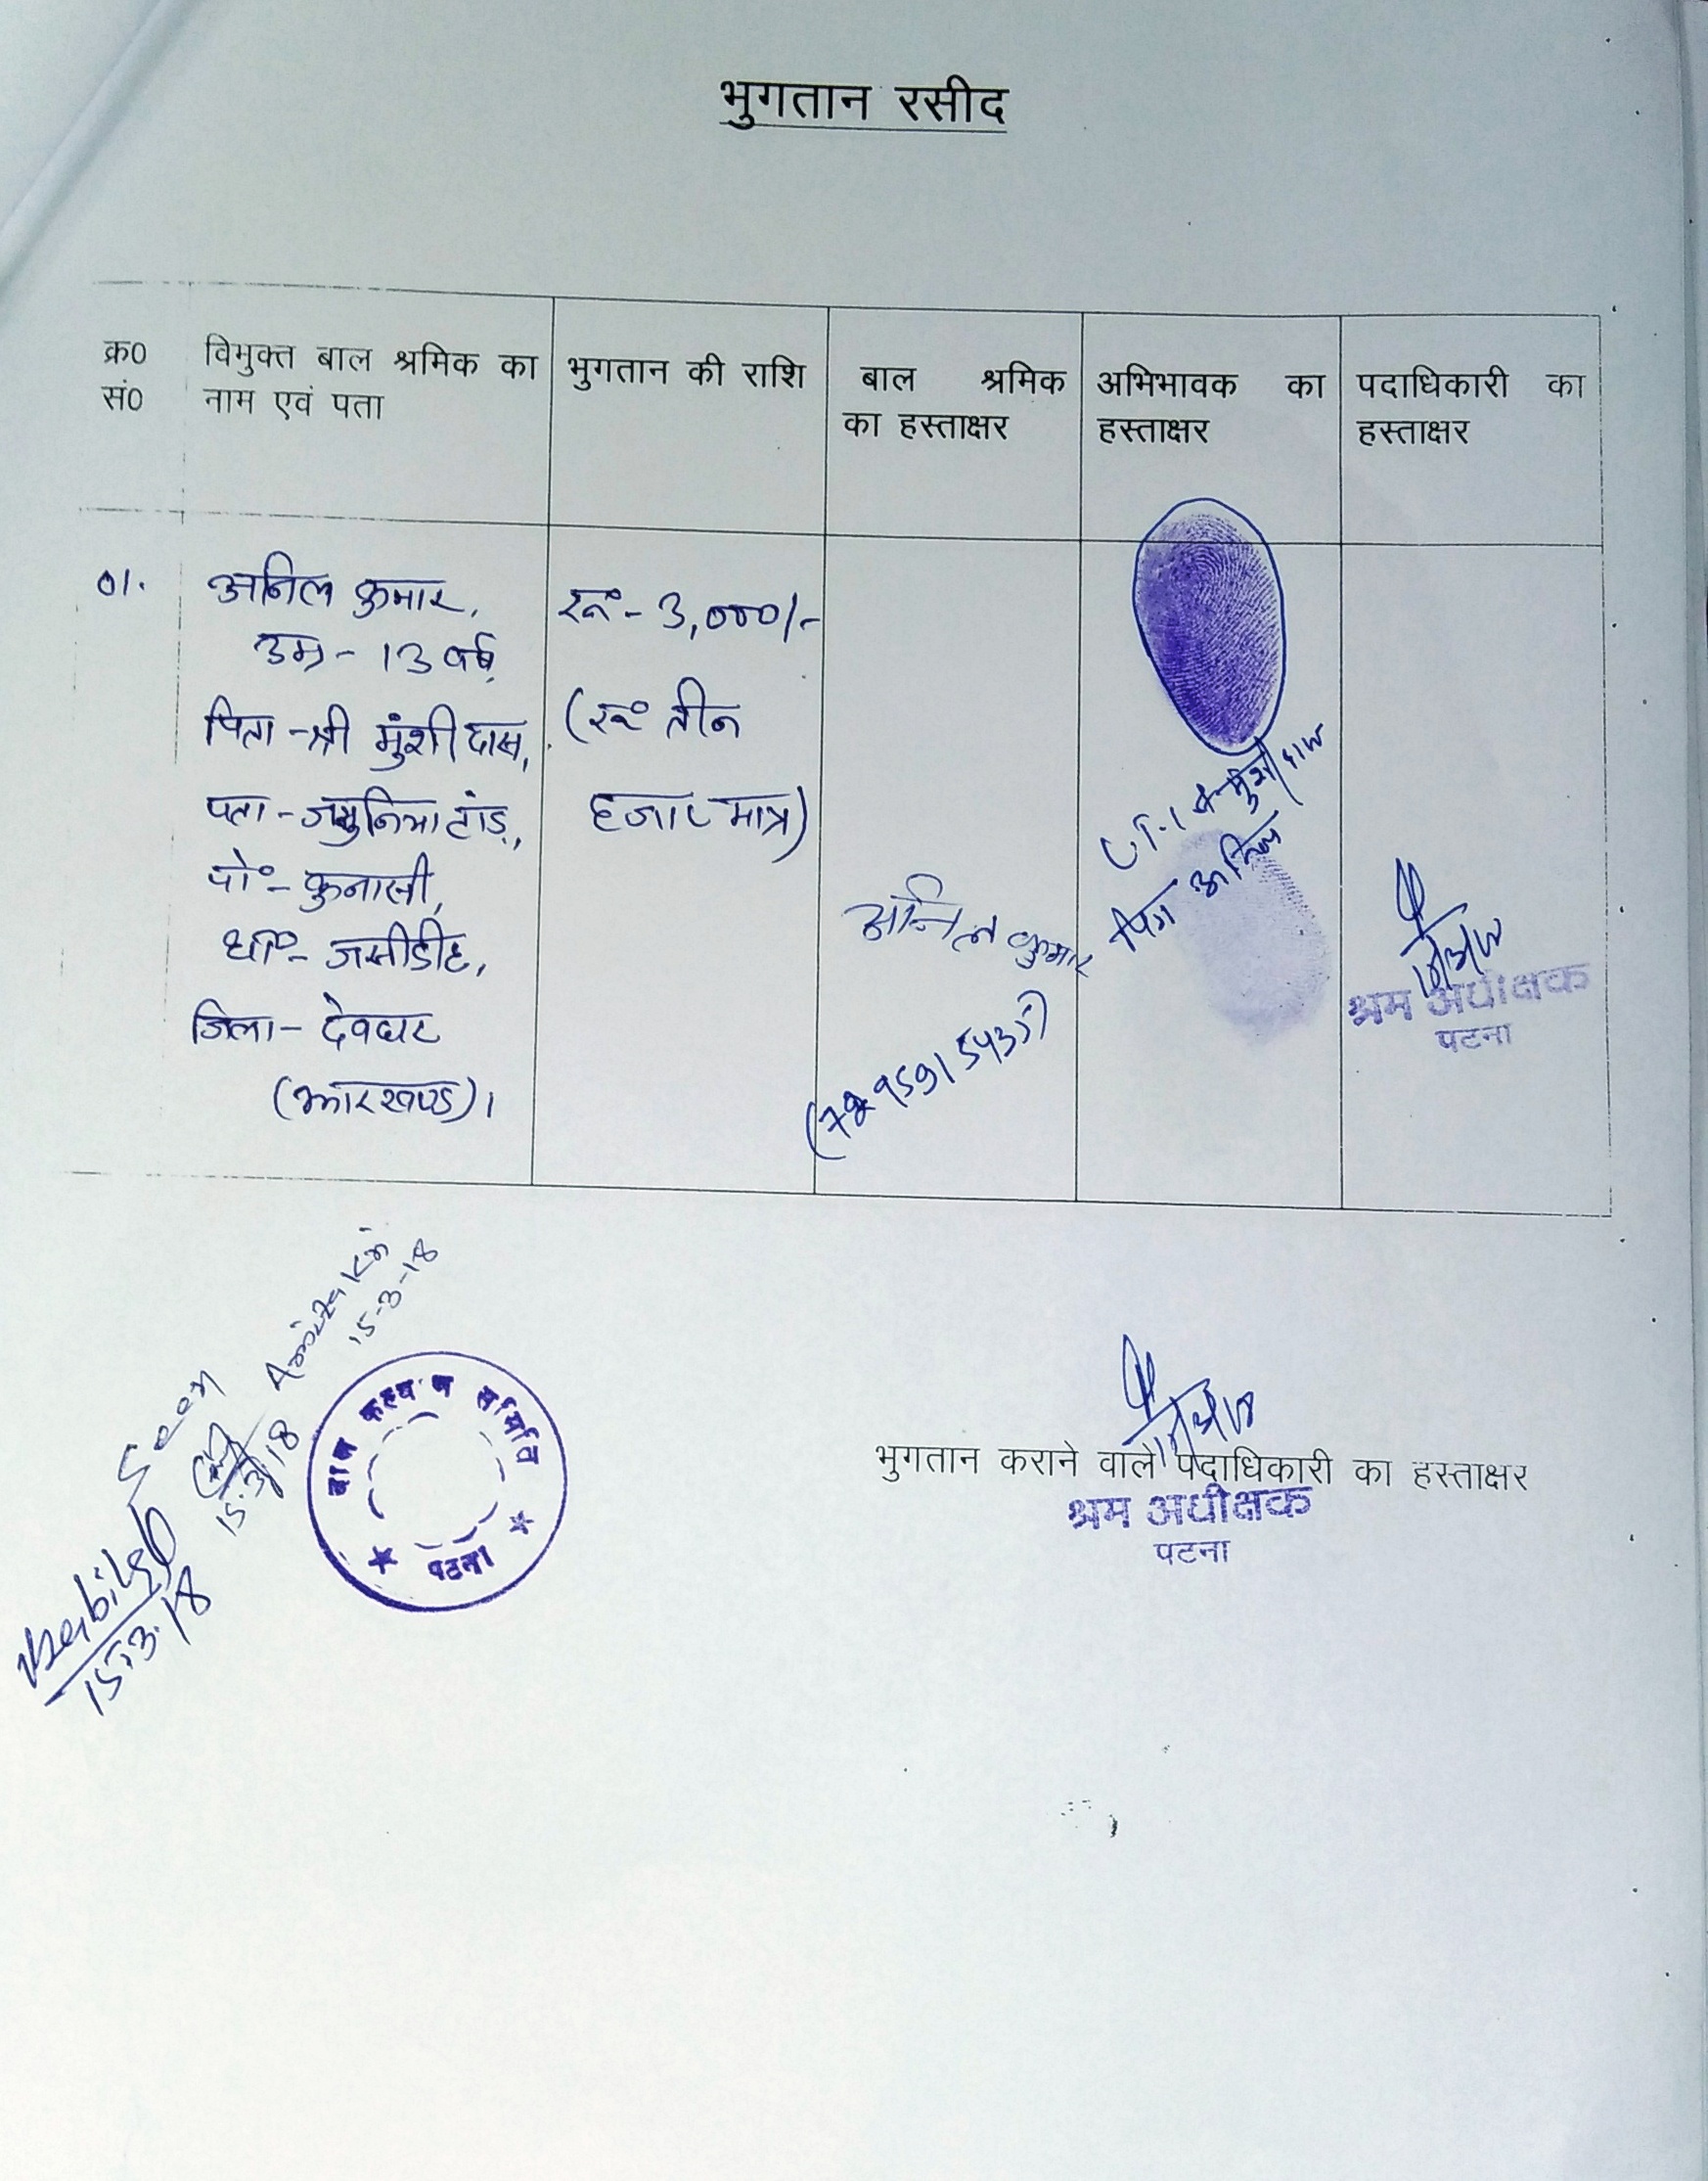 भुगतान रसीद
क्र0 सं0
विमुक्त बाल श्रमिक का
नाम एवं पता
भुगतान की राशि
बाल श्रमिक
का हस्ताक्षर
अभिभावक का
हस्ताक्षर
पदाधिकारी का
हस्ताक्षर
01.
अनिल कुमार,
उम्र - 13 वर्ष,
पिता - श्री मुंशी दास,
पता -
पो॰ - कुनासी,
था॰ - जसीडीह,
जिला - देवघर
(झारखण्ड)।
रू॰ - 3,000/-
(रू॰ तीन
हजार मात्र)
अनिल कुमार
मुंशी दास
पिता अनिल
श्रम अधीक्षक
पटना
Seen
15-3-18
15.3.18
15.3.18
बाल कल्याण समिति
पटना
भुगतान कराने वाले पदाधिकारी का हस्ताक्षर
श्रम अधीक्षक
पटना